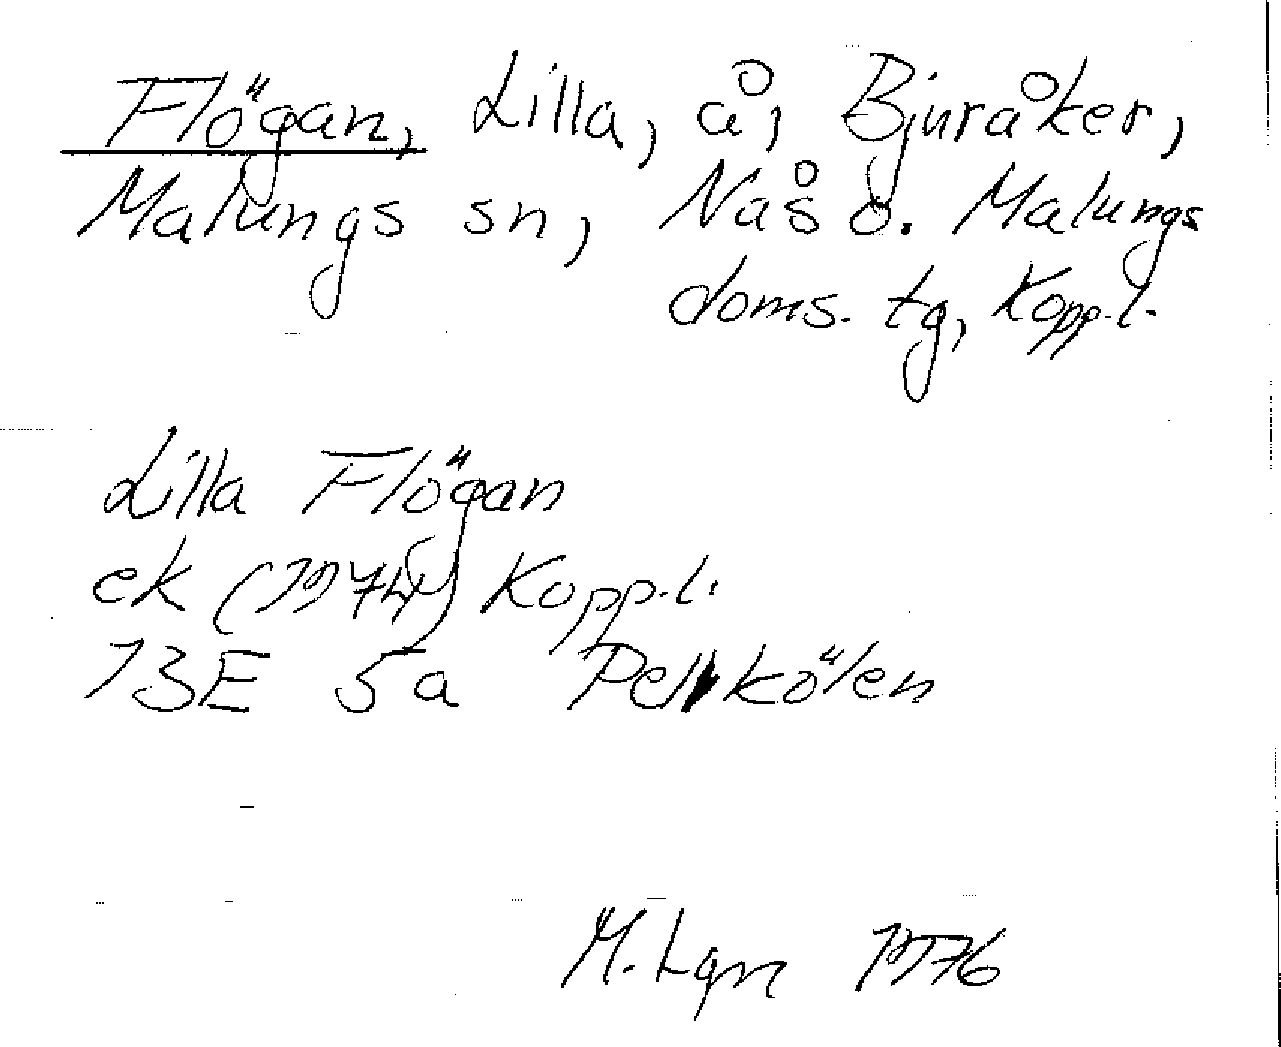 Flögan, Lilla, å, Bjuråker,
Malungs sn, Nås o. Malungs
doms. tg, Kopp.l.
Lilla Flögan
ek (1974) Kopp.l.
13E 5a Pellkölen
M. Lgn 1976